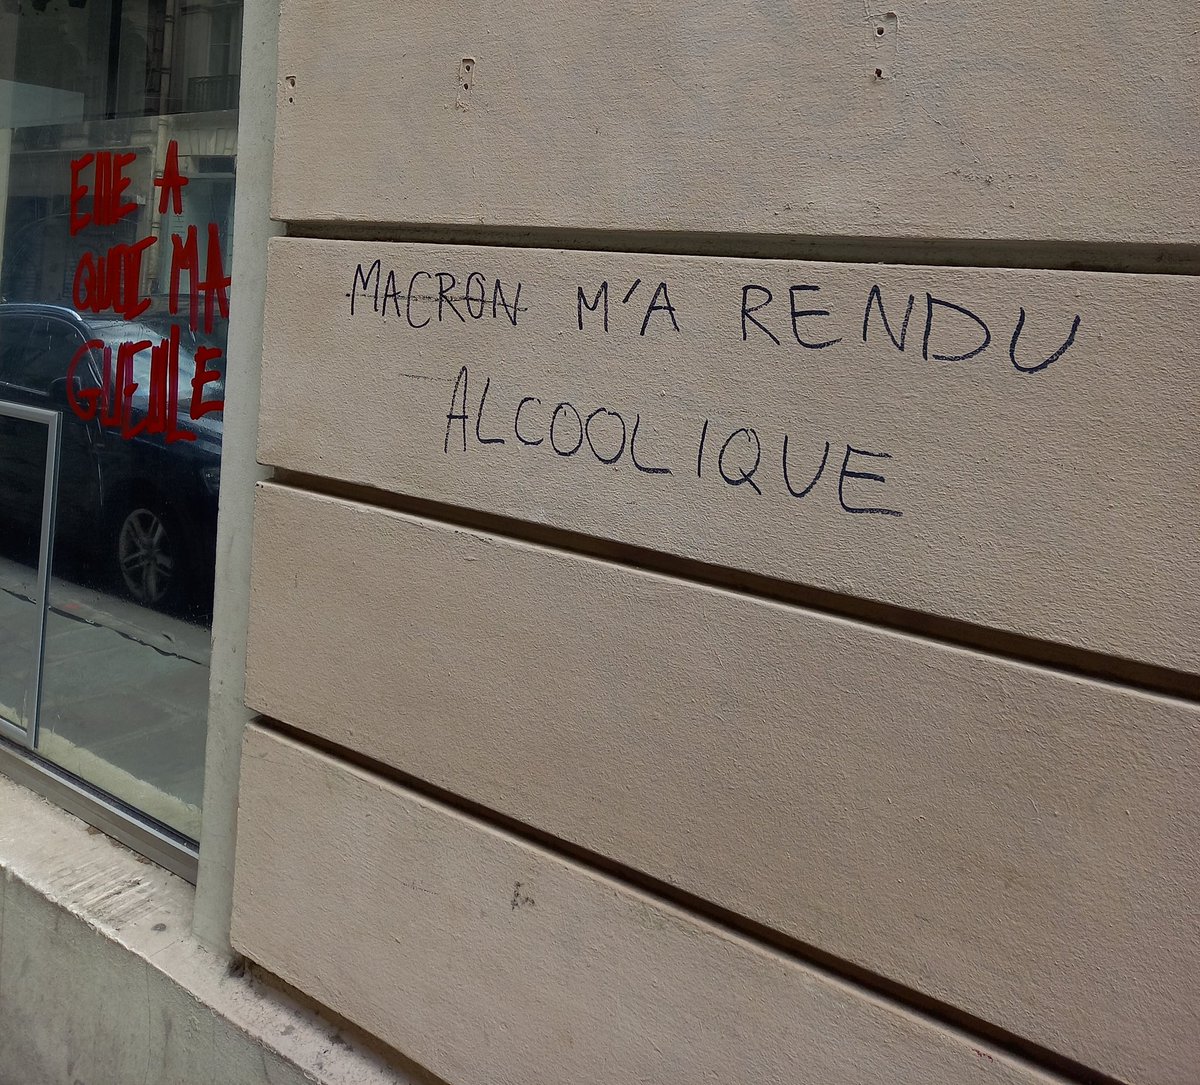 ELLE A
QUOI MA
GUEULE
MACRON M'A RENDU
ALCOOLIQUE